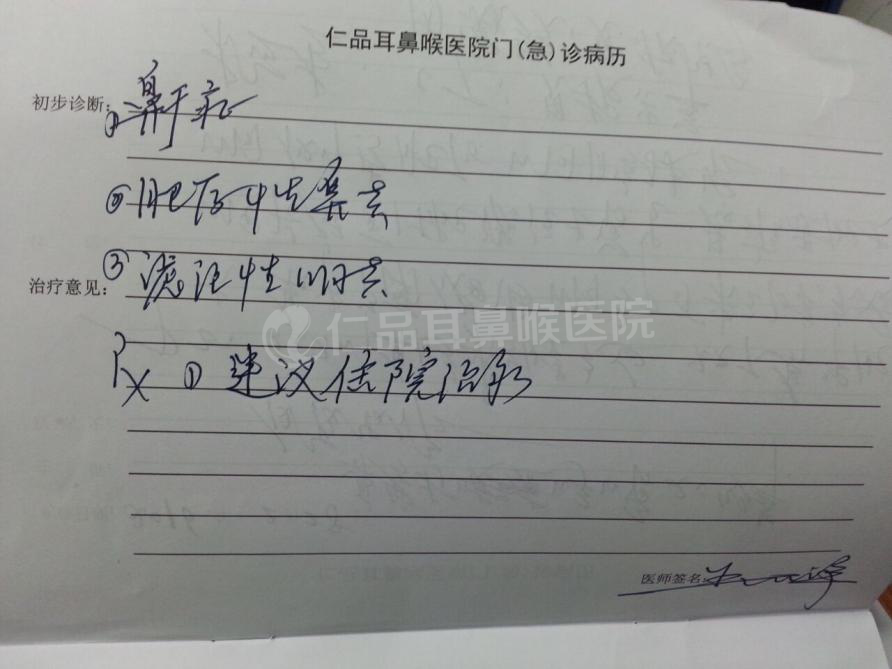 仁品耳鼻喉医院门(急)诊病历
初步诊断: ①鼻鼾症
②肥厚性鼻炎
③滤泡性咽炎
治疗意见:
仁品耳鼻喉医院
Rx ①建议住院治疗
医师签名: